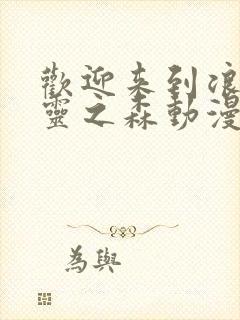 歡迎来到浪
靈之森動漫
為與